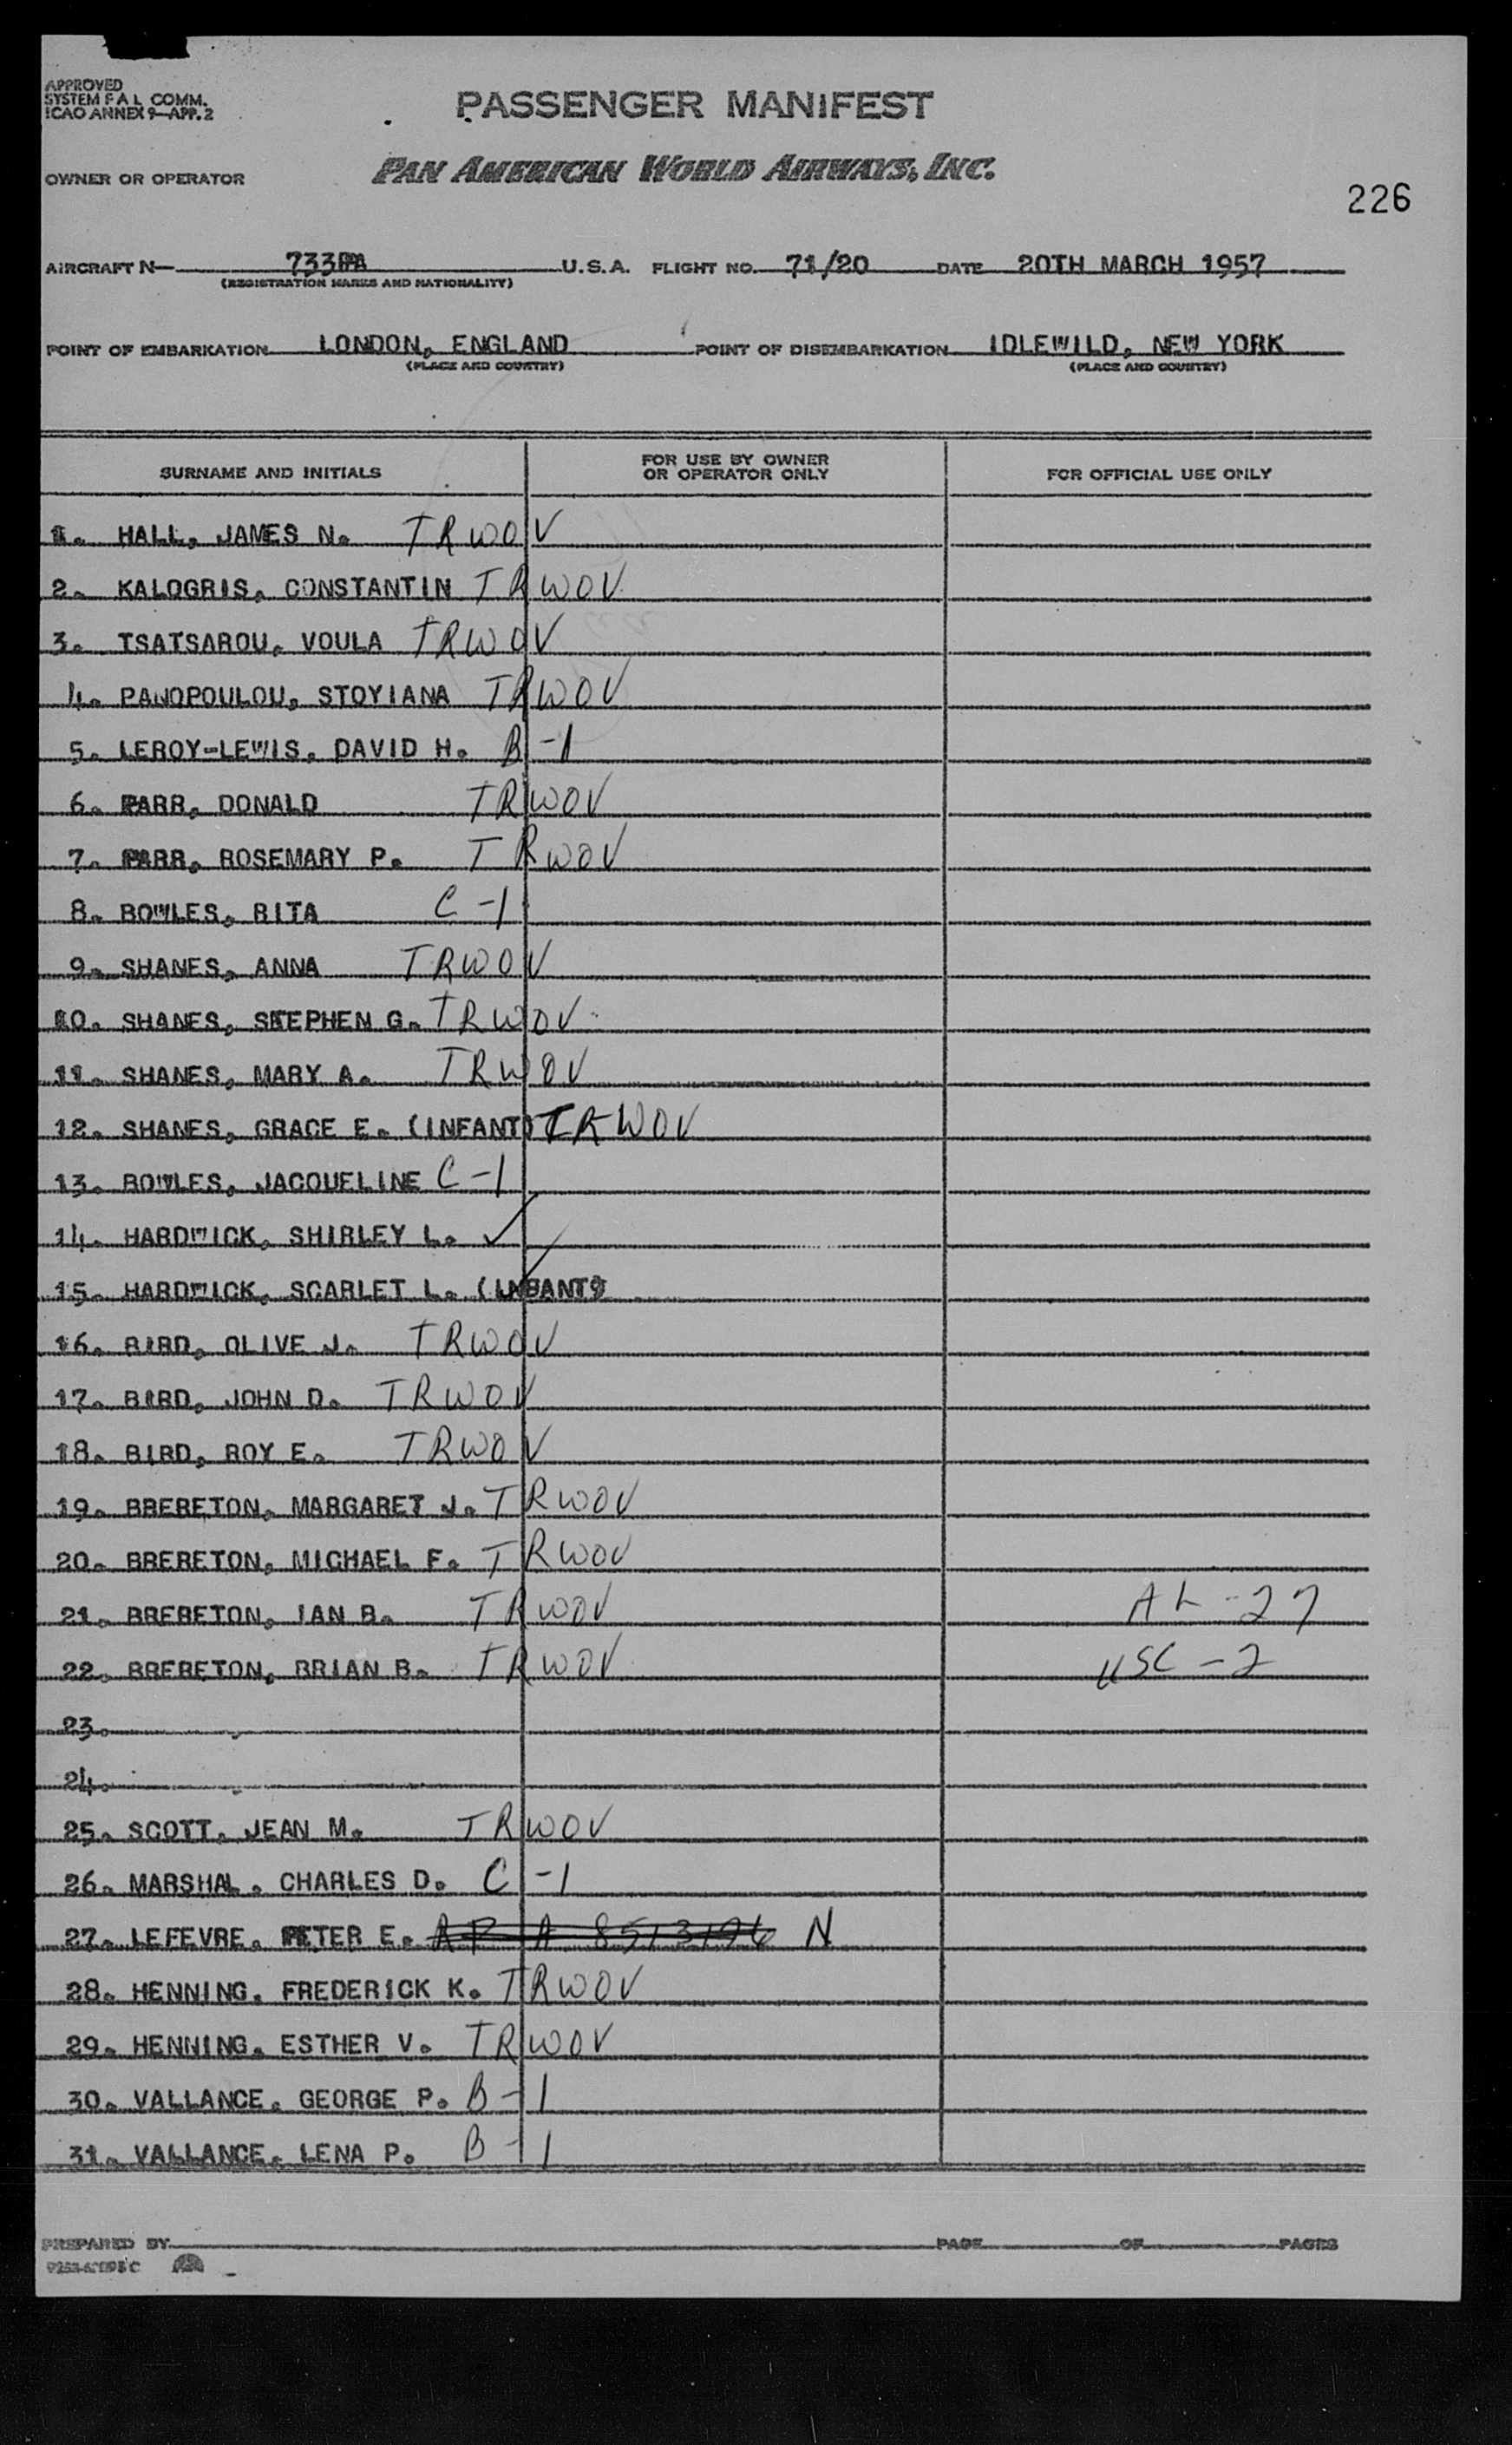 APPROVED
SYSTEM F A L COMM.
ICAO ANNEX 9—APP. 2
PASSENGER MANIFEST
OWNER OR OPERATOR PAN AMERICAN WORLD AIRWAYS, INC.
226
AIRCRAFT N— 733PA U.S.A. FLIGHT NO. 71/20 DATE 20TH MARCH 1957
(REGISTRATION MARKS AND NATIONALITY)
POINT OF EMBARKATION LONDON, ENGLAND POINT OF DISEMBARKATION IDLEWILD, NEW YORK
(PLACE AND COUNTRY) (PLACE AND COUNTRY)
SURNAME AND INITIALS FOR USE BY OWNER OR OPERATOR ONLY FOR OFFICIAL USE ONLY
1. HALL, JAMES N. TRWOV
2. KALOGRIS, CONSTANTIN TRWOV
3. TSATSAROU, VOULA TRWOV
4. PANOPOULOU, STOYIANA TRWOV
5. LEROY-LEWIS, DAVID H. B-1
6. PARR, DONALD TRWOV
7. PARR, ROSEMARY P. TRWOV
8. BOWLES, RITA C-1
9. SHANES, ANNA TRWOV
10. SHANES, STEPHEN G. TRWOV
11. SHANES, MARY A. TRWOV
12. SHANES, GRACE E. (INFANT) TRWOV
13. BOWLES, JACQUELINE C-1
14. HARDWICK, SHIRLEY L. ✓
15. HARDWICK, SCARLET L. (INFANT) ✓
16. BIRD, OLIVE J. TRWOV
17. BIRD, JOHN D. TRWOV
18. BIRD, ROY E. TRWOV
19. BRERETON, MARGARET J. TRWOV
20. BRERETON, MICHAEL F. TRWOV
21. BRERETON, IAN B. TRWOV AL-27
22. BRERETON, BRIAN B. TRWOV USC-2
23.
24.
25. SCOTT, JEAN M. TRWOV
26. MARSHAL, CHARLES D. C-1
27. LEFEVRE, PETER E. N
28. HENNING, FREDERICK K. TRWOV
29. HENNING, ESTHER V. TRWOV
30. VALLANCE, GEORGE P. B-1
31. VALLANCE, LENA P. B-1
PREPARED BY PAGE OF PAGES